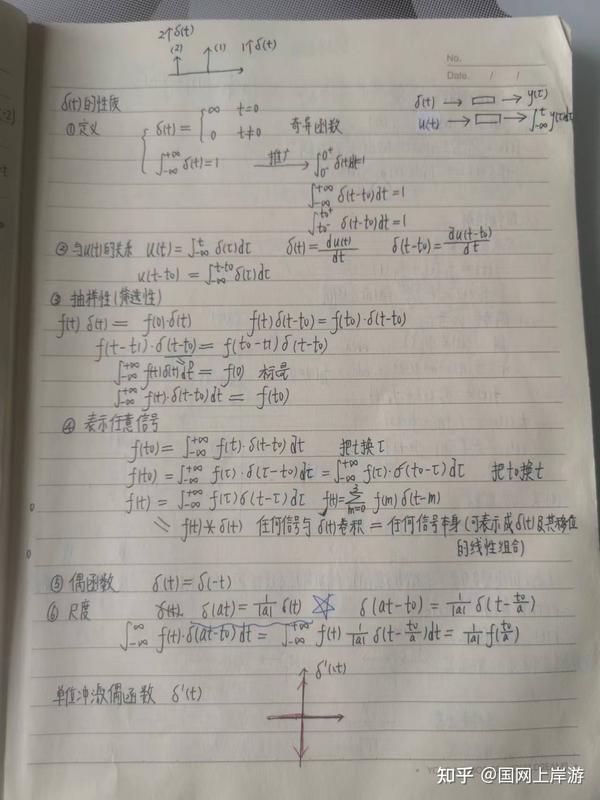 2个δ(t)
(2) (1) 1个δ(t)
No.
Date. / /
δ(t)的性质
δ(t) → □ → y(t)
u(t) → □ → ∫_{-∞}^{t} y(τ)dτ
① 定义 { δ(t) = { ∞ t=0
0 t≠0 奇异函数
∫_{-∞}^{+∞} δ(t) = 1 推广→ ∫_{0^-}^{0^+} δ(t)dt=1
∫_{-∞}^{+∞} δ(t-t0)dt = 1
∫_{t0^-}^{t0^+} δ(t-t0)dt = 1
② 与u(t)的关系 u(t) = ∫_{-∞}^{t} δ(τ)dτ δ(t) = du(t)/dt δ(t-t0) = du(t-t0)/dt
u(t-t0) = ∫_{-∞}^{t-t0} δ(τ)dτ
③ 抽样性(筛选性)
f(t) δ(t) = f(0)·δ(t) f(t) δ(t-t0) = f(t0)·δ(t-t0)
f(t-t1)·δ(t-t0) = f(t0-t1) δ(t-t0)
∫_{-∞}^{+∞} f(t)δ(t)dt = f(0) 标量
∫_{-∞}^{+∞} f(t)·δ(t-t0)dt = f(t0)
④ 表示任意信号
f(t0) = ∫_{-∞}^{+∞} f(t)·δ(t-t0)dt 把t换τ
f(t0) = ∫_{-∞}^{+∞} f(τ)·δ(τ-t0)dτ = ∫_{-∞}^{+∞} f(τ)·δ(t0-τ)dτ 把t0换t
f(t) = ∫_{-∞}^{+∞} f(τ)δ(t-τ)dτ f(t)=∑_{m=0}^{3} f(m)δ(t-m)
= f(t)*δ(t) 任何信号与δ(t)卷积 = 任何信号本身(可表示成δ(t)及其移位
的线性组合)
⑤ 偶函数 δ(t) = δ(-t)
⑥ 尺度 δ(at) = 1/|a| δ(t) ☆ δ(at-t0) = 1/|a| δ(t-t0/a)
∫_{-∞}^{∞} f(t)·δ(at-t0)dt = ∫_{-∞}^{+∞} f(t) 1/|a| δ(t-t0/a)dt = 1/|a| f(t0/a)
δ'(t)
单值冲激偶函数 δ'(t)
知乎 @国网上岸游